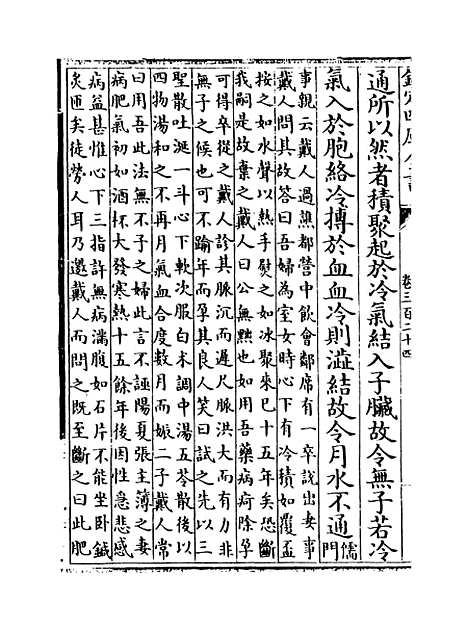 欽定四庫全書
卷三百二十四
通所以然者積聚起於冷氣結入子臟故令無子若冷
氣入於胞絡冷搏於血血冷則澁結故令月水不通儒門
事親云戴人過譙都營中飲會鄰席有一卒說出妻事
戴人問其故答曰吾婦為室女時心下有冷積如覆盃
按之如水聲以熱手熨之如冰聚來已十五年矣恐斷
我嗣是故棄之戴人曰公無黜也如用吾藥病痊除孕
可得卒從之戴人診其脈沉而遲尺脈洪大而有力非
無子之候也可不踰年而孕其良人笑曰試之先以三
聖散吐涎一斗心下軟次服白术調中湯五苓散後以
四物湯和之不再月氣血合度數月而娠二子戴人常
曰用吾此法無不子之婦此言不誣陽夏張主簿之妻
病肥氣初如酒杯大發寒熱十五餘年後因性急悲感
病益甚惟心下三指許無病滿腹如石片不能坐卧鍼
灸匝矣徒勞人耳乃邀戴人而問之既至斷之曰此肥